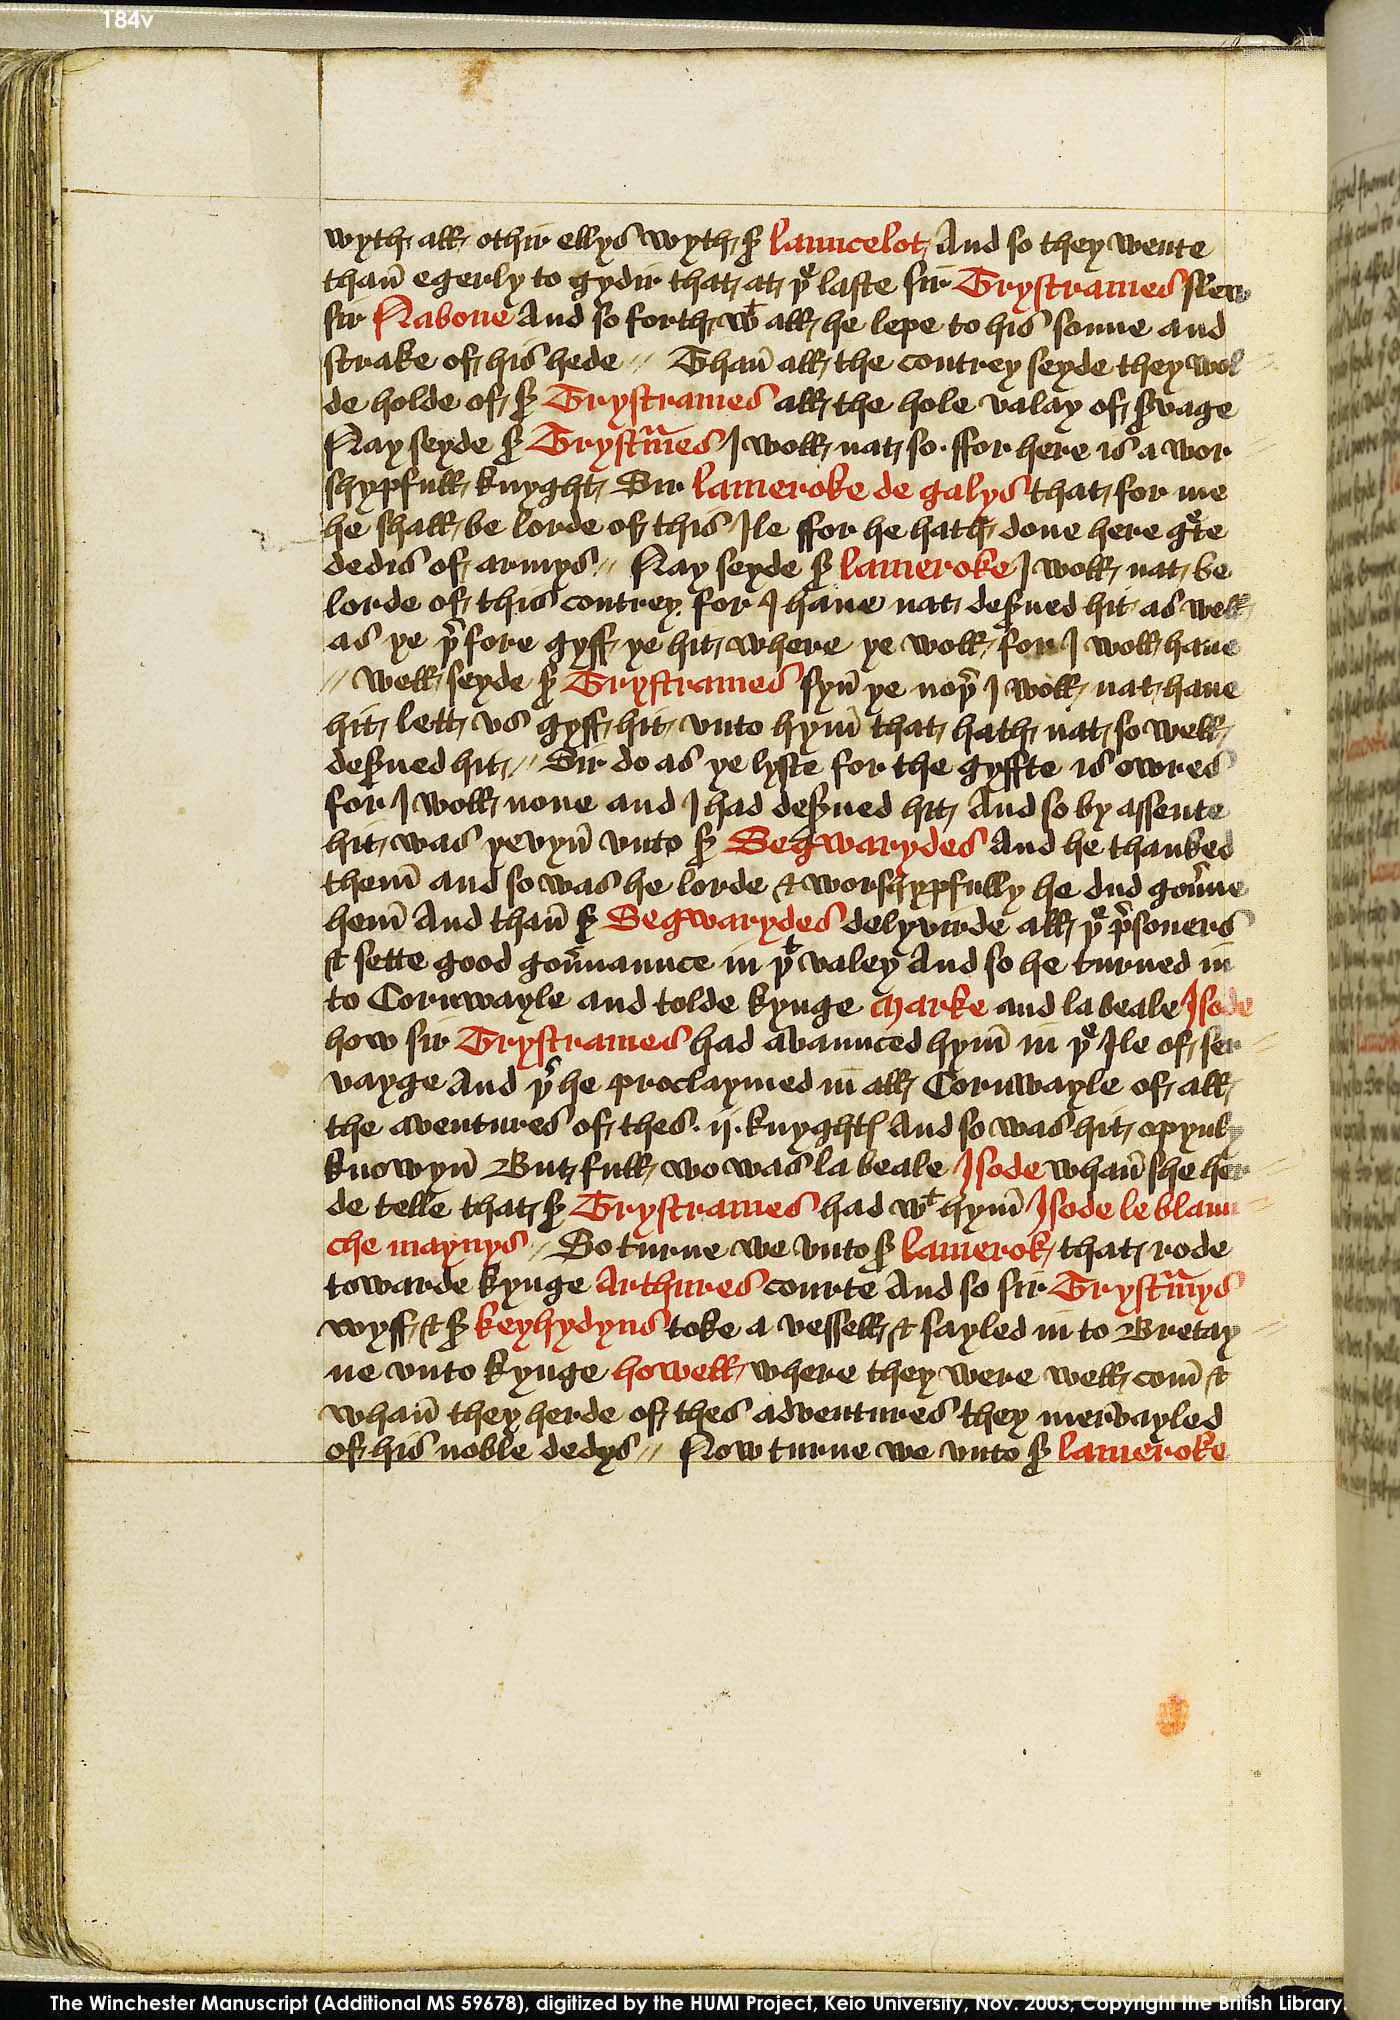 184v
wyth all othir ellys wyth sͬ launcelot And so they wente
than̄ egerly to gydir that at þͤ laste sir Trystrames slew
sir Nabone And so forth wͭ all he lepe to his sonne and
strake of his hede // Than̄ all the contrey seyde they wol
de holde of sͬ Trystrames all the hole valay of s͛vage
Nay seyde sͬ Trystm̄es I woll nat so · ffor here is a wor
shypfull knyght Sir lameroke de galys that for me
he shall be lorde of this Ile ffor he hath done here gͤte
dedis of armys // Nay seyde sͬ lameroke I woll nat be
lorde of this contrey for I haue nat des͛ued hit as well
as ye þͬfore gyff ye hit where ye woll for I woll haue
// well seyde sͬ Trystrames syn̄ ye noþͬ I woll nat haue
hit lett vs gyff hit vnto hym̄ that hath nat so well
des͛ued hit // Sir do as ye lyste for the gyffte is owres
for I woll none and I had des͛ued hit And so by assente
hit was yevyn̄ vnto sͬ Segwarydes And he thanked
them̄ and so was he lorde & worshypfully he dud gou͛ne
hem̄ And than̄ sͬ Segwarydes delyvirde all þͤ p͛soners
& sette good gou͛naunce in þͭ valey And so he turned in
to Cornwayle and tolde kynge Marke and la beale Isode
how sir Trystrames had avaunced hym̄ in þͤ Ile of ser
vayge And þͬ he proclaymed in all Cornwayle of all
the aventures of thes · ij · knyghtꝭ And so was hit opynly
knowyn̄ But full wo was la beale Isode whan̄ she her
de telle that sͬ Trystrames had wͭ hym̄ Isode le blaun
che maynys // So turne we vnto sͬ lamerok that rode
towarde kynge Arthures courte And so sir Trystm̄ys
wyff & sͬ keyhydyns toke a vessell & sayled in to Bretay
ne vnto kynge howell where they were well com̄ &
whan̄ they herde of thes adventures they mervayled
of his noble dedys // Now turne we vnto sͬ lameroke
The Winchester Manuscript (Additional MS 59678), digitized by the HUMI Project, Keio University, Nov. 2003; Copyright the British Library.